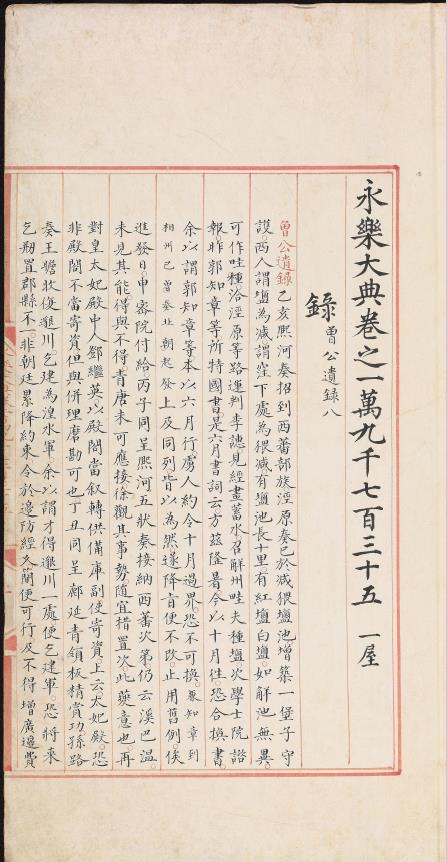 永樂大典卷之一萬九千七百三十五 一屋
錄 曾公遺錄八
曾公遺錄乙亥熙河奏招到西蕃部族涇原奏已於減猥鹽池增築一堡子守
護西人謂鹽為減謂窪下處為猥減有鹽池長十里有紅鹽白鹽如解池無異
可作畦種洽涇原等路運判李譓見經畫蓄水召解州畦夫種鹽次學士院諮
報昨郭知章等所持國書是六月書詞云方茲隆暑今以十月徃恐合換書
余以謂郭知章等本以六月行虜人約令十月過界恐不可換兼知章到
相州已曾奏北朝起發上及同列皆以為然遂降旨便不改止用舊例俟
進發日申密院付給丙子同呈熙河五狀奏接納西蕃次第仍云溪巴溫
未見其能得與不得青唐未可應接徐觀其事勢隨宜措置次此意也再
對皇太妃殿中人鄧繼英以殿閣當叙轉供備庫副使寄資上云太妃殿恐
非殿閣不當寄資但與併理磨勘可也丁丑同呈鄜延青領板精賞功孫路
奏王贍收復邈川乞建為湟水軍余以謂才得邈川一處便乞建軍恐將來
乞剏置郡縣不一非朝廷累降約束令於邊防經久簡便可行及不得增廣邊費